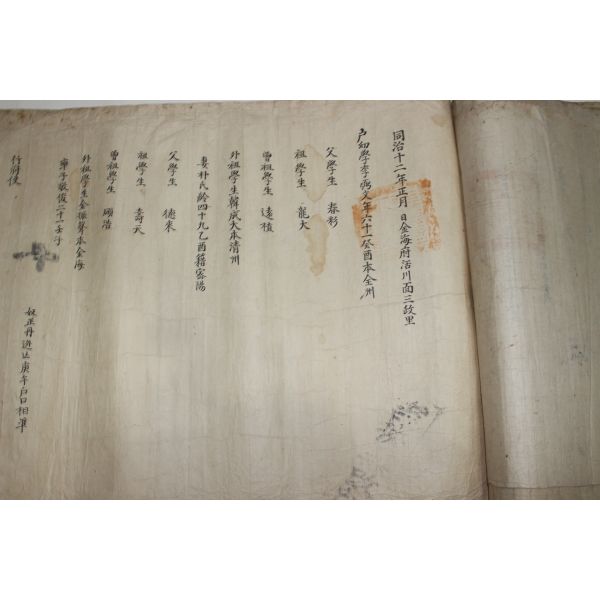 同治十二年正月 日金海府活川面三政里
戶幼學李 文年六十一癸酉本全州
父學生 春彩
祖學生 龍大
曾祖學生 遠植
外祖學生韓成大本清州
妻朴氏齡四十九乙酉籍密陽
父學生 德來
祖學生 壽天
曾祖學生 顯浩
外祖學生金振聲本金海
率子敬俊二十一
奴正丹 庚午戶口相準
行府使